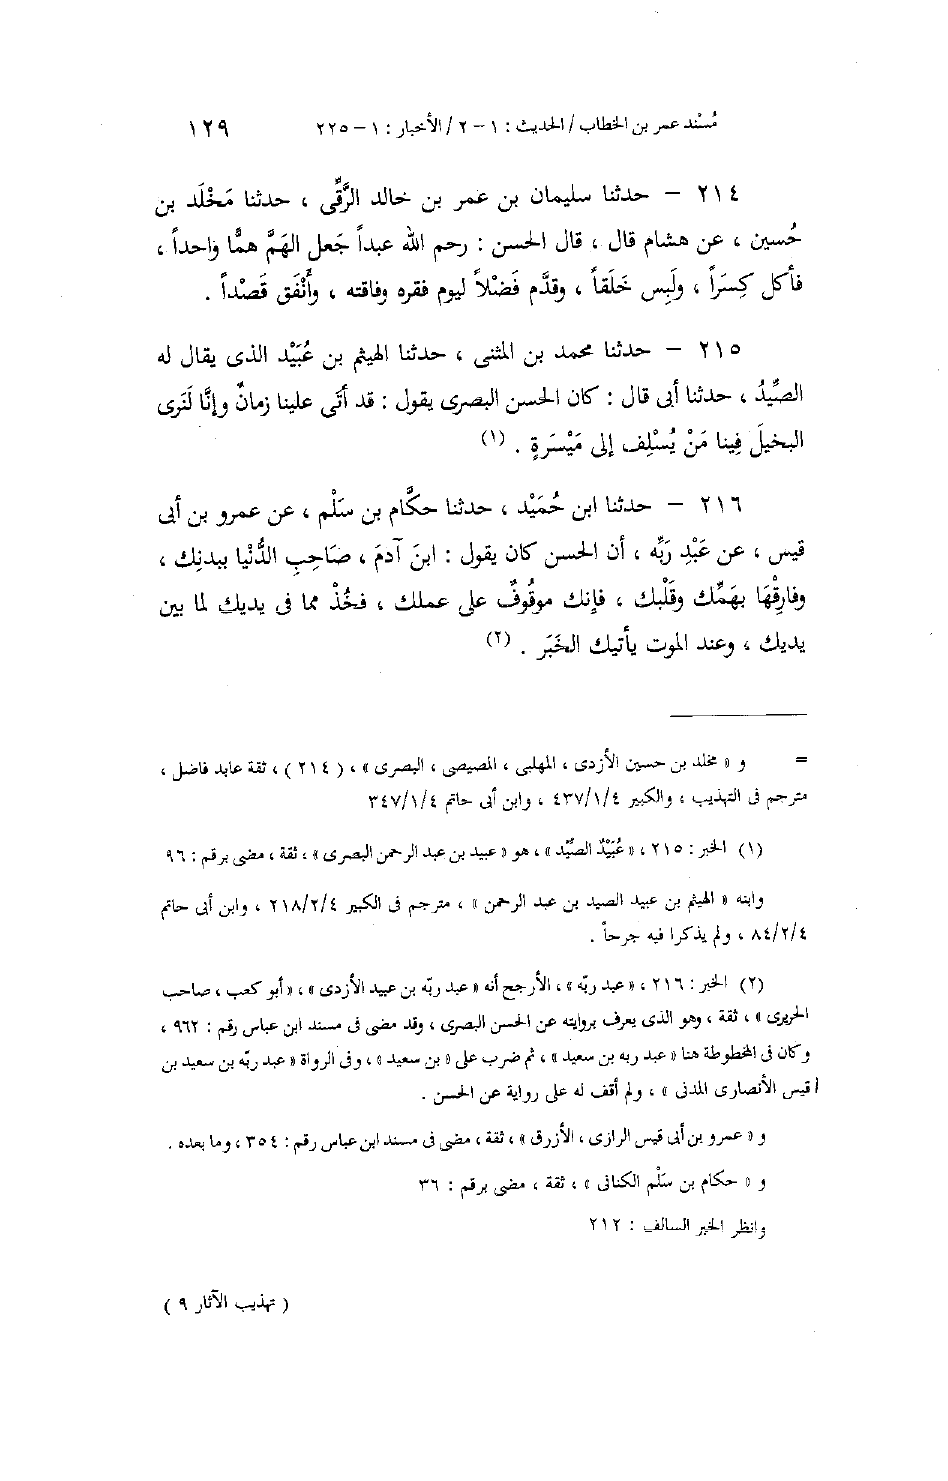 مُسْند عمر بن الخطاب / الحديث : ١ - ٢ / الأخبار : ١ - ٢٢٥ ١٢٩
٢١٤ - حدثنا سليمان بن عمر بن خالد الرَّقِّى ، حدثنا مَخْلَد بن
حُسين ، عن هشام قال ، قال الحسن : رحم الله عبداً جَعل الهَمَّ همًّا واحداً ،
فأكل كِسَراً ، ولَبِس خَلَقاً ، وقدَّم فَضْلاً ليوم فقره وفاقته ، وأَنْفَق قَصْداً .
٢١٥ - حدثنا محمد بن المثنى ، حدثنا الهيثم بن عُبَيْد الذى يقال له
الصِّيدُ ، حدثنا أبى قال : كان الحسن البصرى يقول : قد أتَى علينا زمانٌ وإنَّا لَنَرى
البخيلَ فِينا مَنْ يُسْلِف إلى مَيْسَرةٍ . (١)
٢١٦ - حدثنا ابن حُمَيْد ، حدثنا حكَّام بن سَلْم ، عن عمرو بن أبى
قيس ، عن عَبْدِ رَبِّه ، أن الحسن كان يقول : ابنَ آدمَ ، صَاحِبِ الدُّنْيا ببدنِك ،
وفارِقْهَا بهَمِّك وقَلْبك ، فإنك موقُوفٌ على عملك ، فخُذْ مما فى يديك لما بين
يديك ، وعند الموت يأتيك الخَبَر . (٢)
= و « مخلد بن حسين الأزدى ، المهلبى ، المصيصى ، البصرى » ، ( ٢١٤ ) ، ثقة عابد فاضل ،
مترجم فى التهذيب ، والكبير ٤٣٧/١/٤ ، وابن أبى حاتم ٣٤٧/١/٤
(١) الخبر : ٢١٥ ، « عُبَيْدٌ الصِّيْد » ، هو « عبيد بن عبد الرحمن البصرى » ، ثقة ، مضى برقم : ٩٦
وابنه « الهيثم بن عبيد الصيد بن عبد الرحمن » ، مترجم فى الكبير ٢١٨/٢/٤ ، وابن أبى حاتم
٨٤/٢/٤ ، ولم يذكرا فيه جرحاً .
(٢) الخبر : ٢١٦ ، « عبد ربّه » ، الأرجح أنه « عبد ربّه بن عبيد الأزدى » ، « أبو كعب ، صاحب
الحريرى » ، ثقة ، وهو الذى يعرف بروايته عن الحسن البصرى ، وقد مضى فى مسند ابن عباس رقم : ٩٦٢ ،
وكان فى المخطوطة هنا « عبد ربه بن سعيد » ، ثم ضرب على « بن سعيد » ، وفى الرواة « عبد ربّه بن سعيد بن
قيس الأنصارى المدنى » ، ولم أقف له على رواية عن الحسن .
و « عمرو بن أبى قيس الرازى ، الأزرق » ، ثقة ، مضى فى مسند ابن عباس رقم : ٣٥٤ ، وما بعده .
و « حكام بن سَلْم الكنانى » ، ثقة ، مضى برقم : ٣٦
وانظر الخبر السالف : ٢١٢
( تهذيب الآثار ٩ )